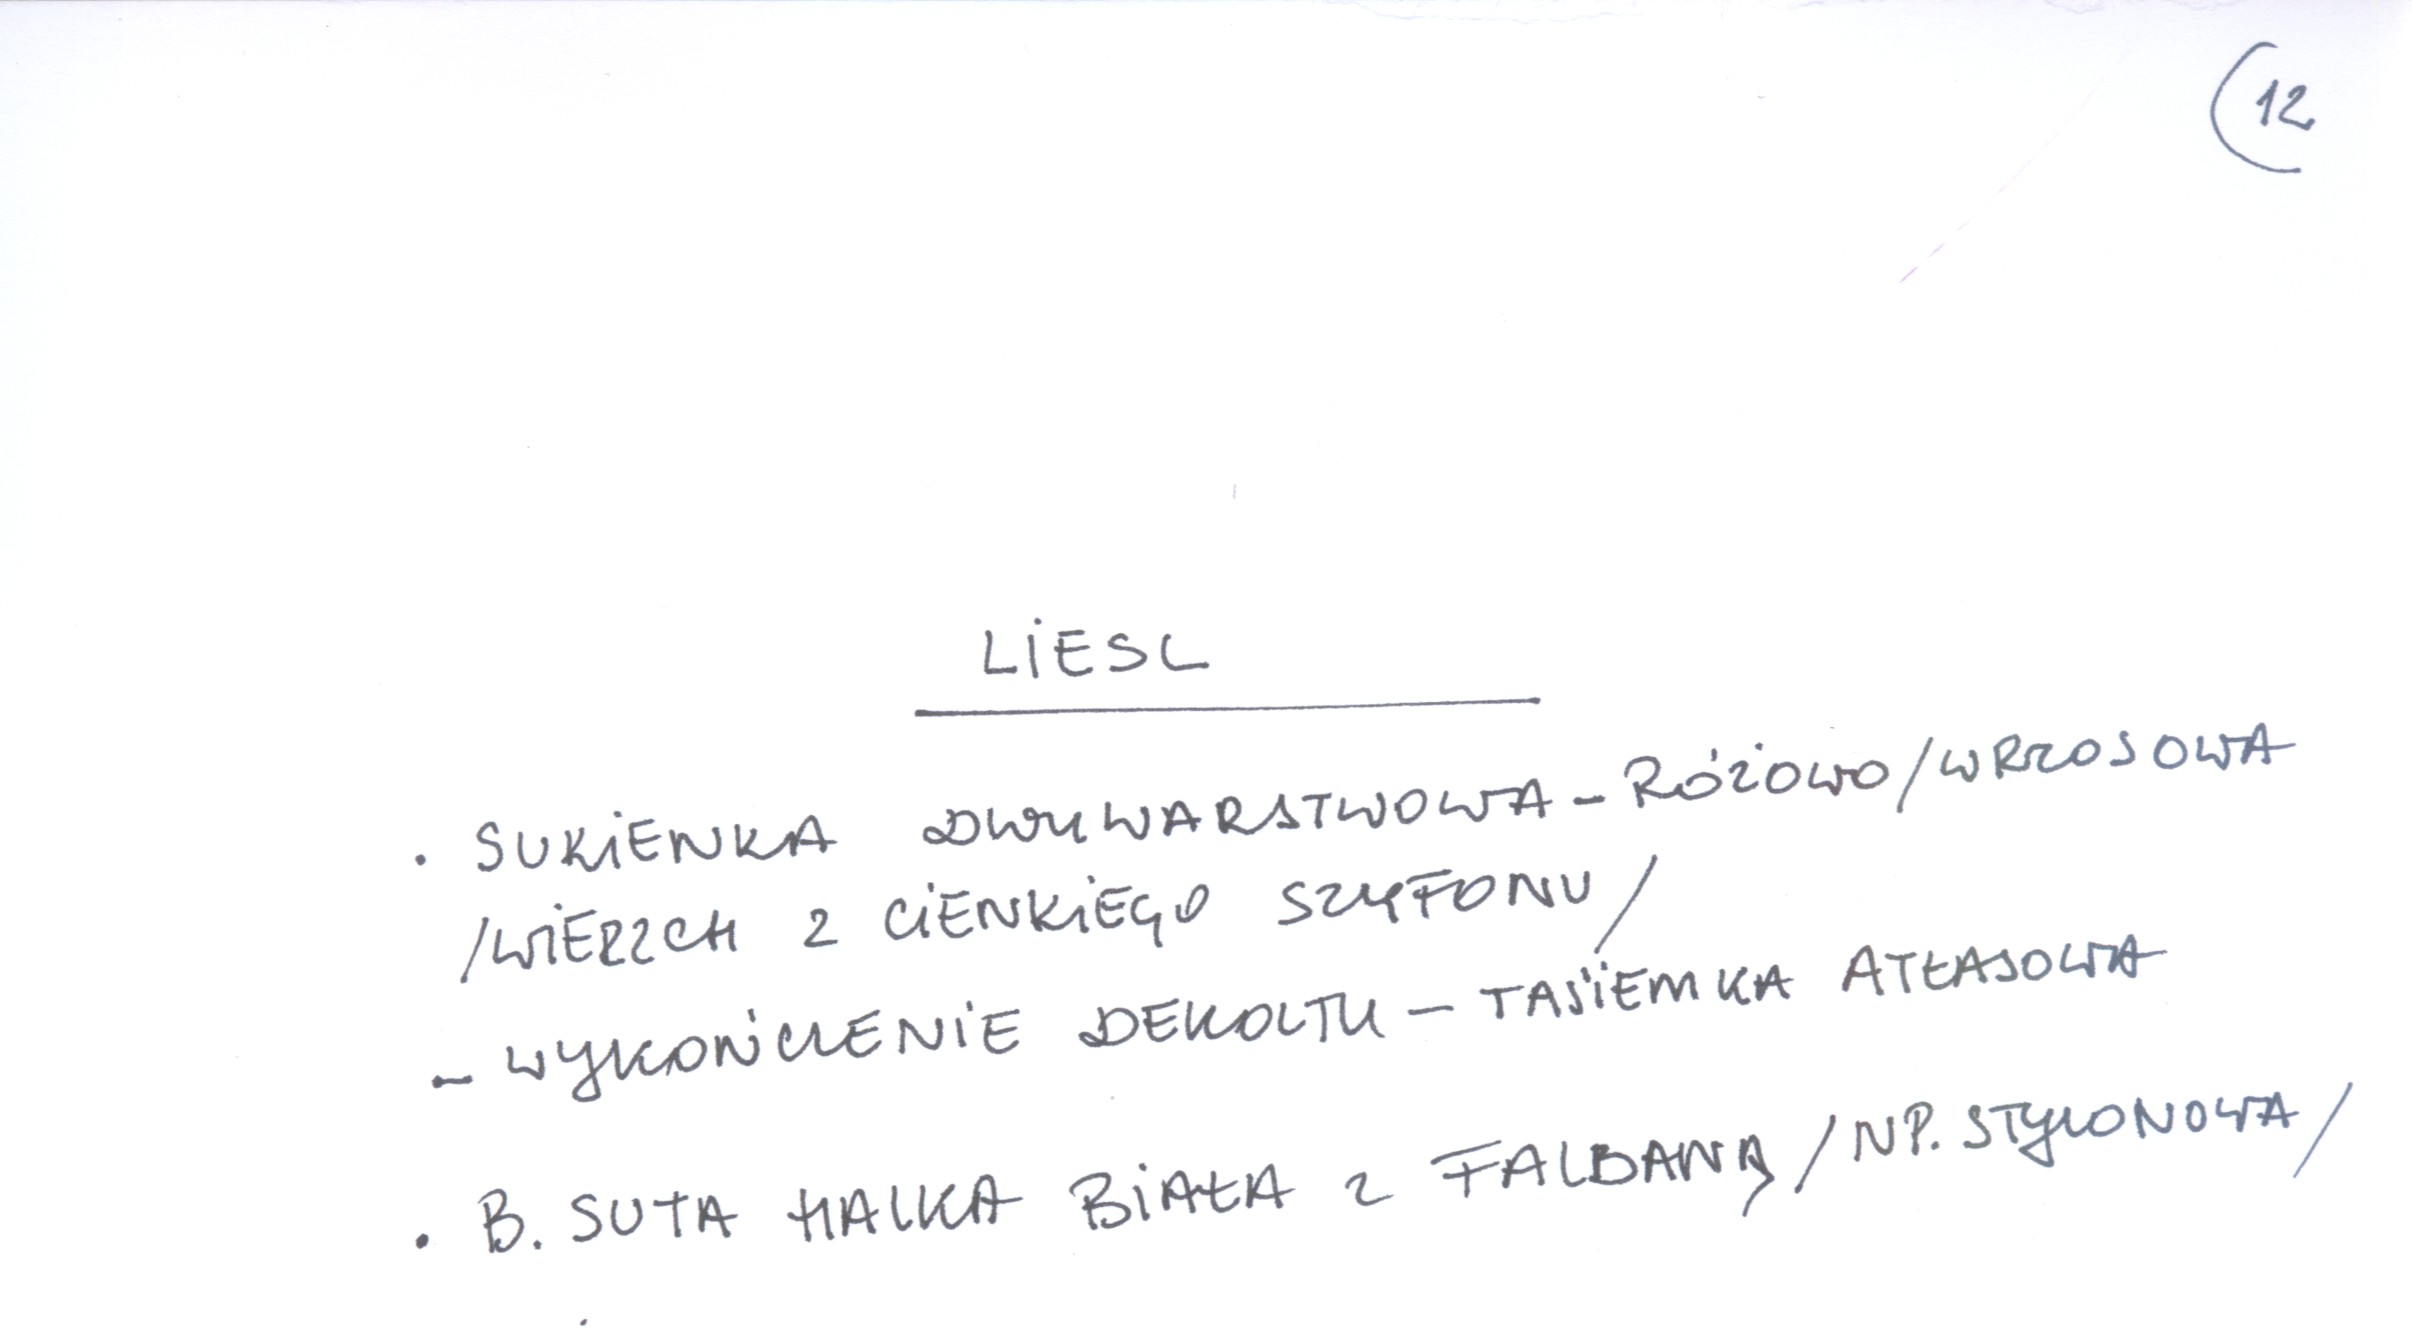 (12
LIESL
. SUKIENKA DWUWARSTWOWA - RÓŻOWO/WRZOSOWA
/WIERZCH Z CIENKIEGO SZYFONU/
- WYKOŃCZENIE DEKOLTU - TASIEMKA ATŁASOWA
. B. SUTA HALKA BIAŁA Z FALBANĄ /NP. STYLONOWA/